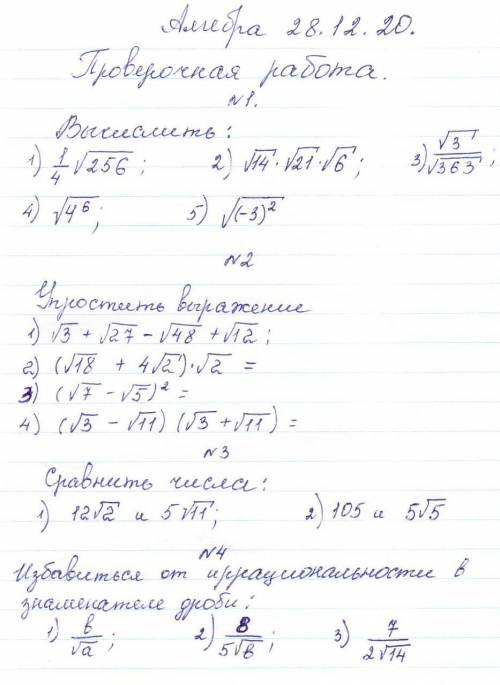 Алгебра 28.12.20.
Проверочная работа.
№1.
Вычислить:
1) 1/4 √256; 2) √14 · √21 · √6; 3) √3/√363;
4) √4⁶; 5) √(-3)²
№2
Упростить выражение
1) √3 + √27 - √48 + √12;
2) (√18 + 4√2) · √2 =
3) (√7 - √5)² =
4) (√3 - √11) (√3 + √11) =
№3
Сравнить числа:
1) 12√2 и 5√11; 2) 105 и 5√5
№4
Избавиться от иррациональности в
знаменателе дроби:
1) в/√а; 2) 8/5√в; 3) 7/2√14